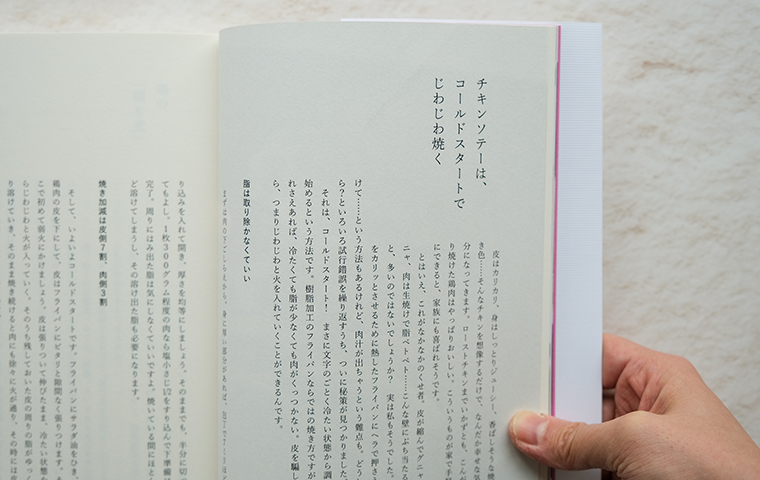 チキンソテーは、
コールドスタートで
じわじわ焼く
皮はカリカリ、身はしっとりジューシー、香ばしそうな焼
き色……そんなチキンを想像するだけで、なんだか幸せな気
分になってきます。ローストチキンまでいかずとも、こんが
り焼けた鶏肉はやっぱりおいしい。こういうものが家で手軽
にできると、家族にも喜ばれそうです。
とはいえ、これがなかなかのくせ者。皮が縮んでグニャグ
ニャ、肉は生焼けで脂ベトベト……こんな壁にぶち当たるこ
と、多いのではないでしょうか？　実は私もそうでした。
をカリッとさせるために熱したフライパンにヘラで押さ
けて……という方法もあるけれど、肉汁が出ちゃうという難点も。どう
ら？といろいろ試行錯誤を繰り返すうち、ついに秘策が見つかりました。
それは、コールドスタート！　まさに文字のごとく冷たい状態から調
始めるという方法です。樹脂加工のフライパンならではの焼き方ですが、
れさえあれば、冷たくても脂が少なくても肉がくっつかない。皮を騙し
ら、つまりじわじわと火を入れていくことができるんです。
脂は取り除かなくていい
まずは肉の下ごしらえから。身に厚い部分があれば、包丁で
り込みを入れて開き、厚さを均等にしましょう。そのままでも、半分に切
てもよし。1枚300グラム程度の肉なら塩小さじ1/2をすり込んで下準備
完了。周りにはみ出た脂は気にしなくていいですよ。焼いている間にほと
ど溶けてしまうし、その溶け出た脂も必要になります。
焼き加減は皮側7割、肉側3割
そして、いよいよコールドスタートです。フライパンにサラダ油をひき、
鶏肉の皮を下にして、皮はフライパンにピタリと隙間なく張りつけます。
こで初めて弱火にかけましょう。皮は張りついて伸びたまま、冷たい状態
らじわじわと火が入っていく。そのうち残しておいた皮の周りの脂がゆっく
り溶けていき、そのまま焼き続けると肉にも徐々に火が通り、その時には皮